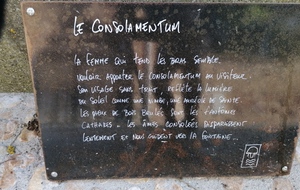 LE CONSOLAMENTUM
LA FEMME QUI TEND LES BRAS SEMBLE
VOULOIR APPORTER LE CONSOLAMENTUM AU VISITEUR.
SON VISAGE SANS TRAIT, REFLÈTE LA LUMIÈRE
DU SOLEIL COMME UNE NIMBE, UNE AURÉOLE DE SAINTE.
LES PIEUX DE BOIS BRÛLÉS SONT LES
CATHARES. LES ÂMES CONSOLÉES DISPARAISSENT
LENTEMENT ET NOUS GUIDENT VERS LA FONTAINE...